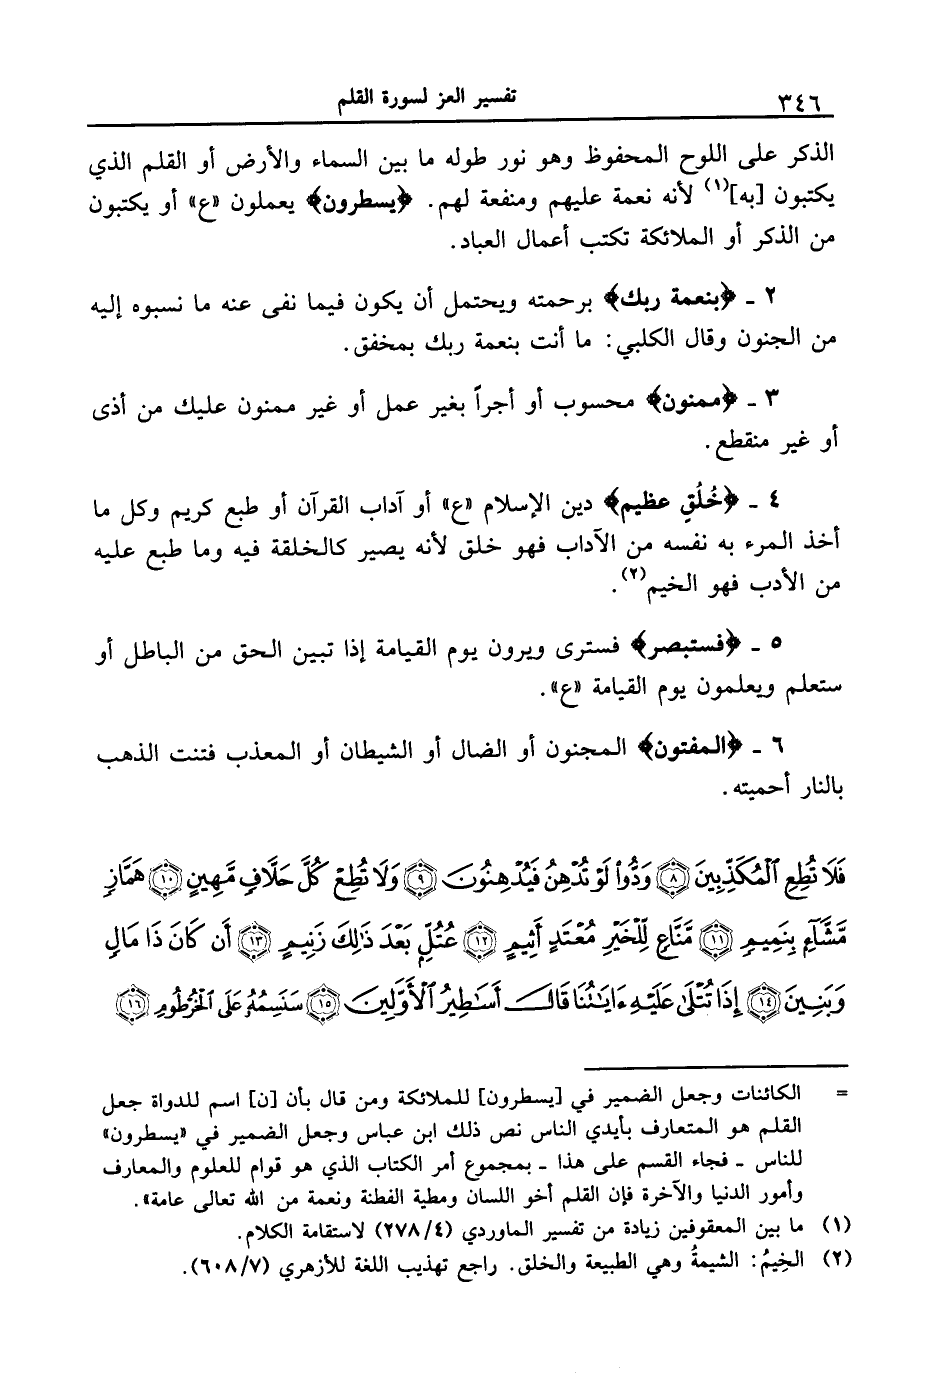 ٣٤٦ تفسير العز لسورة القلم
الذكر على اللوح المحفوظ وهو نور طوله ما بين السماء والأرض أو القلم الذي
يكتبون [به](١) لأنه نعمة عليهم ومنفعة لهم. ﴿يسطرون﴾ يعملون «ع» أو يكتبون
من الذكر أو الملائكة تكتب أعمال العباد.
٢ ـ ﴿بنعمة ربك﴾ برحمته ويحتمل أن يكون فيما نفى عنه ما نسبوه إليه
من الجنون وقال الكلبي: ما أنت بنعمة ربك بمخفق.
٣ ـ ﴿ممنون﴾ محسوب أو أجراً بغير عمل أو غير ممنون عليك من أذى
أو غير منقطع.
٤ ـ ﴿خُلُقٍ عظيم﴾ دين الإسلام «ع» أو آداب القرآن أو طبع كريم وكل ما
أخذ المرء به نفسه من الآداب فهو خلق لأنه يصير كالخلقة فيه وما طبع عليه
من الأدب فهو الخيم(٢).
٥ ـ ﴿فستبصر﴾ فسترى ويرون يوم القيامة إذا تبين الحق من الباطل أو
ستعلم ويعلمون يوم القيامة «ع».
٦ ـ ﴿المفتون﴾ المجنون أو الضال أو الشيطان أو المعذب فتنت الذهب
بالنار أحميته.
فَلَا تُطِعِ ٱلْمُكَذِّبِينَ ﴿٨﴾ وَدُّوا۟ لَوْ تُدْهِنُ فَيُدْهِنُونَ ﴿٩﴾ وَلَا تُطِعْ كُلَّ حَلَّافٍ مَّهِينٍ ﴿١٠﴾ هَمَّازٍ
مَّشَّآءٍۭ بِنَمِيمٍ ﴿١١﴾ مَّنَّاعٍ لِّلْخَيْرِ مُعْتَدٍ أَثِيمٍ ﴿١٢﴾ عُتُلٍّۭ بَعْدَ ذَٰلِكَ زَنِيمٍ ﴿١٣﴾ أَن كَانَ ذَا مَالٍ
وَبَنِينَ ﴿١٤﴾ إِذَا تُتْلَىٰ عَلَيْهِ ءَايَٰتُنَا قَالَ أَسَٰطِيرُ ٱلْأَوَّلِينَ ﴿١٥﴾ سَنَسِمُهُۥ عَلَى ٱلْخُرْطُومِ ﴿١٦﴾
= الكائنات وجعل الضمير في [يسطرون] للملائكة ومن قال بأن [ن] اسم للدواة جعل
القلم هو المتعارف بأيدي الناس نص ذلك ابن عباس وجعل الضمير في «يسطرون»
للناس ـ فجاء القسم على هذا ـ بمجموع أمر الكتاب الذي هو قوام للعلوم والمعارف
وأمور الدنيا والآخرة فإن القلم أخو اللسان ومطية الفطنة ونعمة من الله تعالى عامة».
(١) ما بين المعقوفين زيادة من تفسير الماوردي (٢٧٨/٤) لاستقامة الكلام.
(٢) الخِيمُ: الشيمةُ وهي الطبيعة والخلق. راجع تهذيب اللغة للأزهري (٦٠٨/٧).